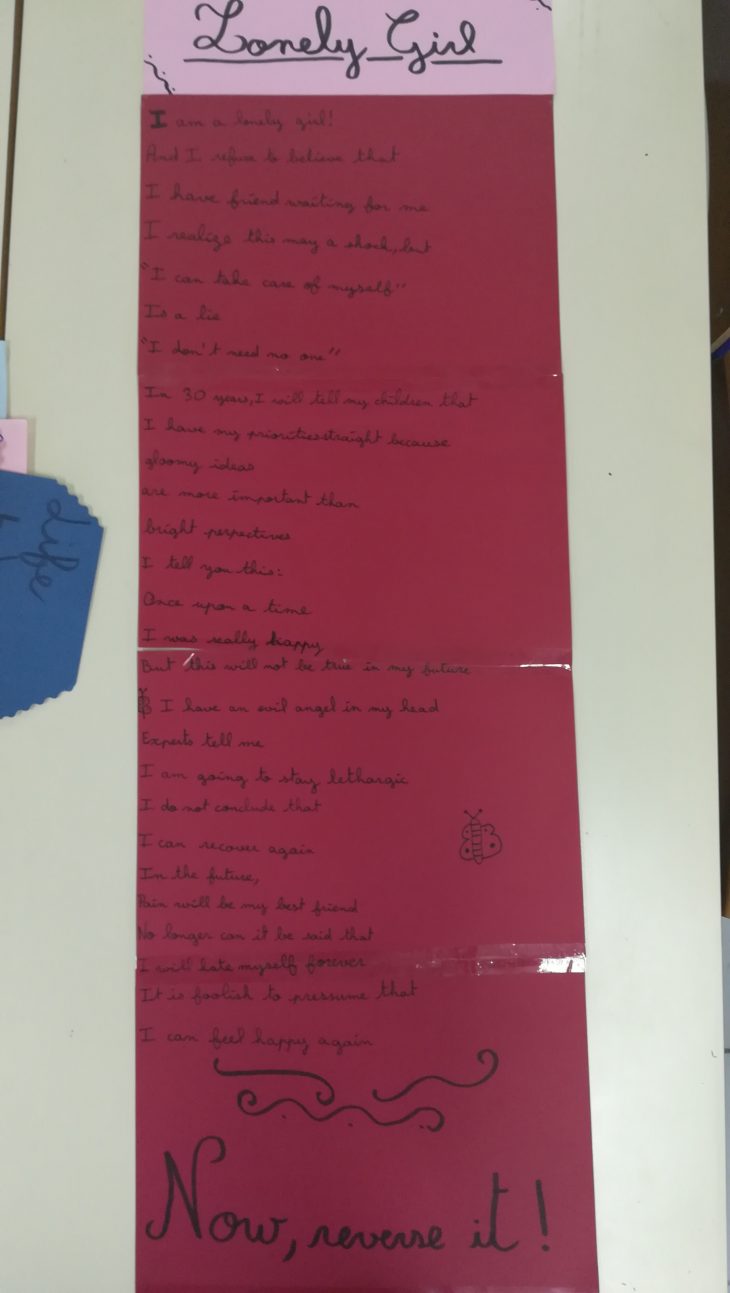 Lonely Girl
I am a lonely girl!
And I refuse to believe that
I have friend waiting for me
I realize this may a shock, but
"I can take care of myself"
Is a lie
"I don't need no one"
In 30 years, I will tell my children that
I have my priorities straight because
gloomy ideas
are more important than
bright perpectives
I tell you this:
Once upon a time
I was really happy
But this will not be true in my future
I have an evil angel in my head
Experts tell me
I am going to stay lethargic
I do not conclude that
I can recover again
In the future,
Pain will be my best friend
No longer can it be said that
I will hate myself forever
It is foolish to pressume that
I can feel happy again
Now, reverse it!
Life